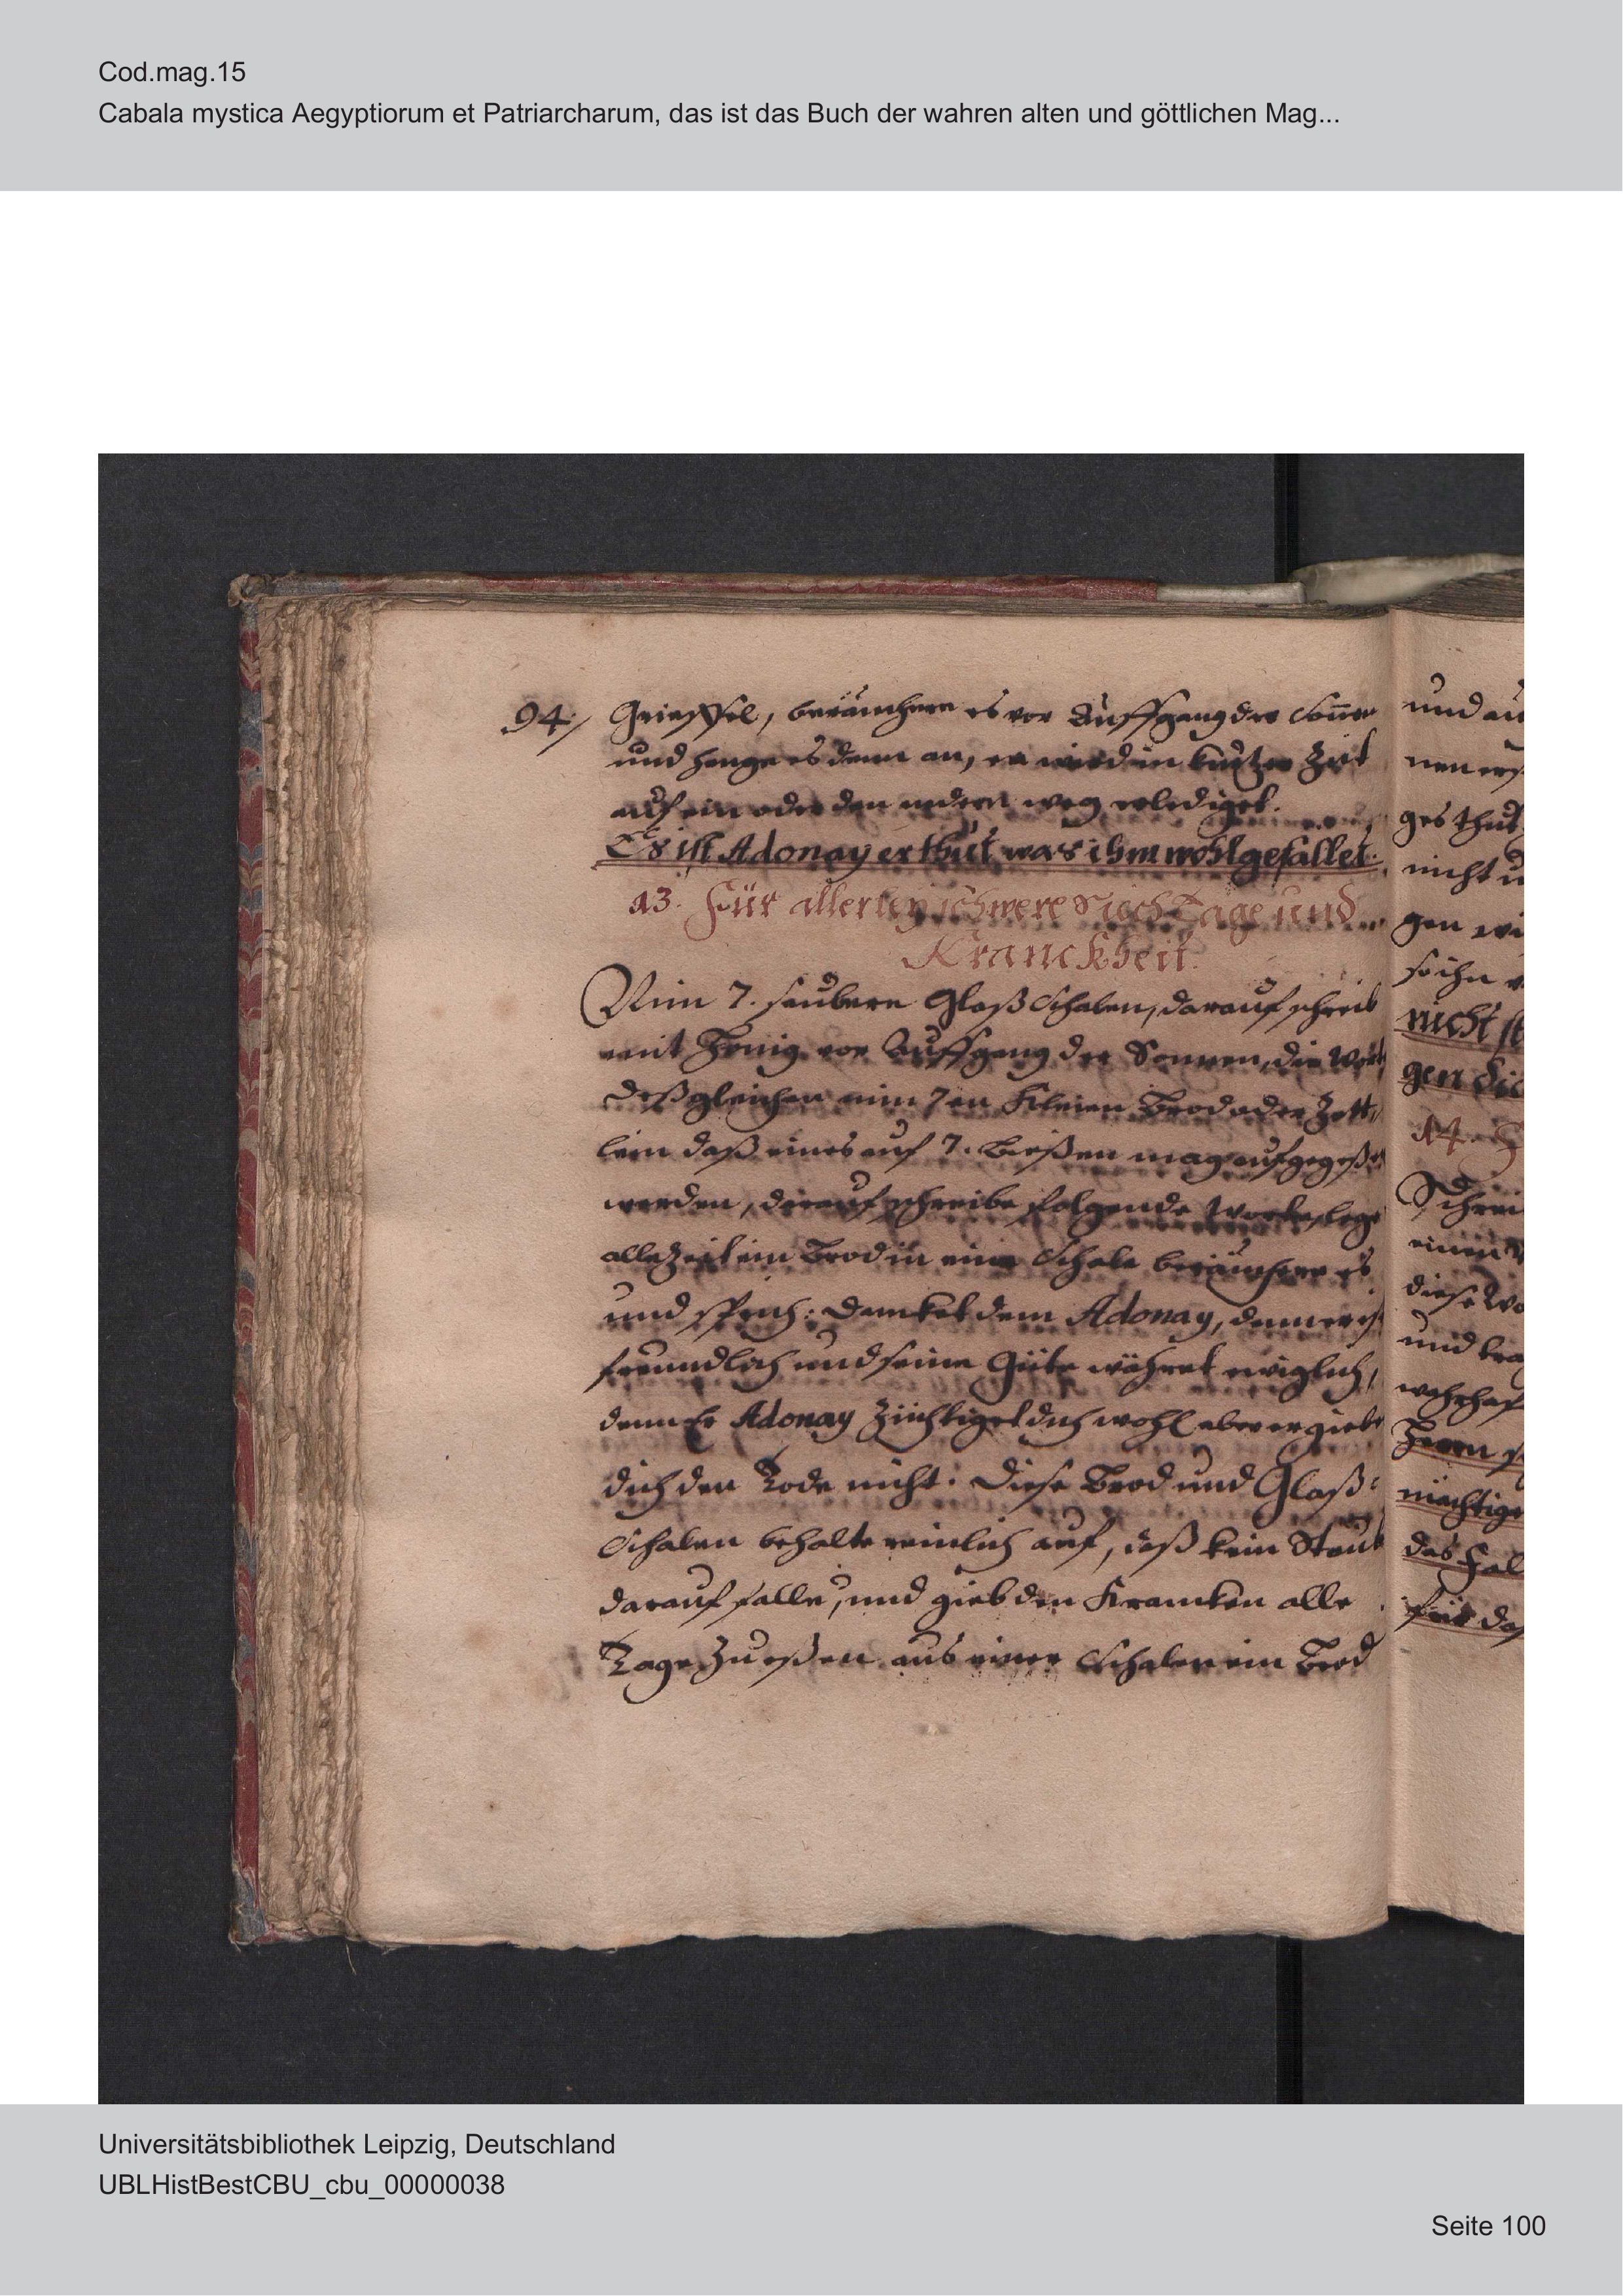 Cod.mag.15
Cabala mystica Aegyptiorum et Patriarcharum, das ist das Buch der wahren alten und göttlichen Mag...
94/
beräuchere es vor Auffgang der Soñen
und henge es dann an, er wird in kurtzer Zeit
auf ein oder den andern weg erlediget.
Es ist Adonay er thut was ihm wohlgefället.
13. Für allerley schwere Siech Tage und
Kranckheit.
Nim 7. saubere Glaß Schalen, darauf schreib
mit Honig vor Auffgang der Sonnen, die Wort
deßgleichen nim 7en kleine Brod oder Zett,
lein daß eines auf 7. Bißen mag aufgegeßen
werden, darauf schreibe folgende Worte, lege
allezeit ein Brod in eine Schale beräuchere es
und sprich: Dancket dem Adonay, denn er ist
freundlich und seine Güte währet ewiglich,
denn Er Adonay züchtiget dich wohl aber er giebt
dich den Tode nicht. Diese Brod und Glaß:
Schalen behalte reinlich auf, daß kein Staub
darauf falle, und gieb den Krancken alle
Tage zu eßen aus einer Schalen ein Brod
und
ges thut
nicht
gen
so ihn
nicht
gen
14.
Schrei
diese Wo
und
wahrhaf
Herrn
mächtige
das
für das
Universitätsbibliothek Leipzig, Deutschland
UBLHistBestCBU_cbu_00000038
Seite 100